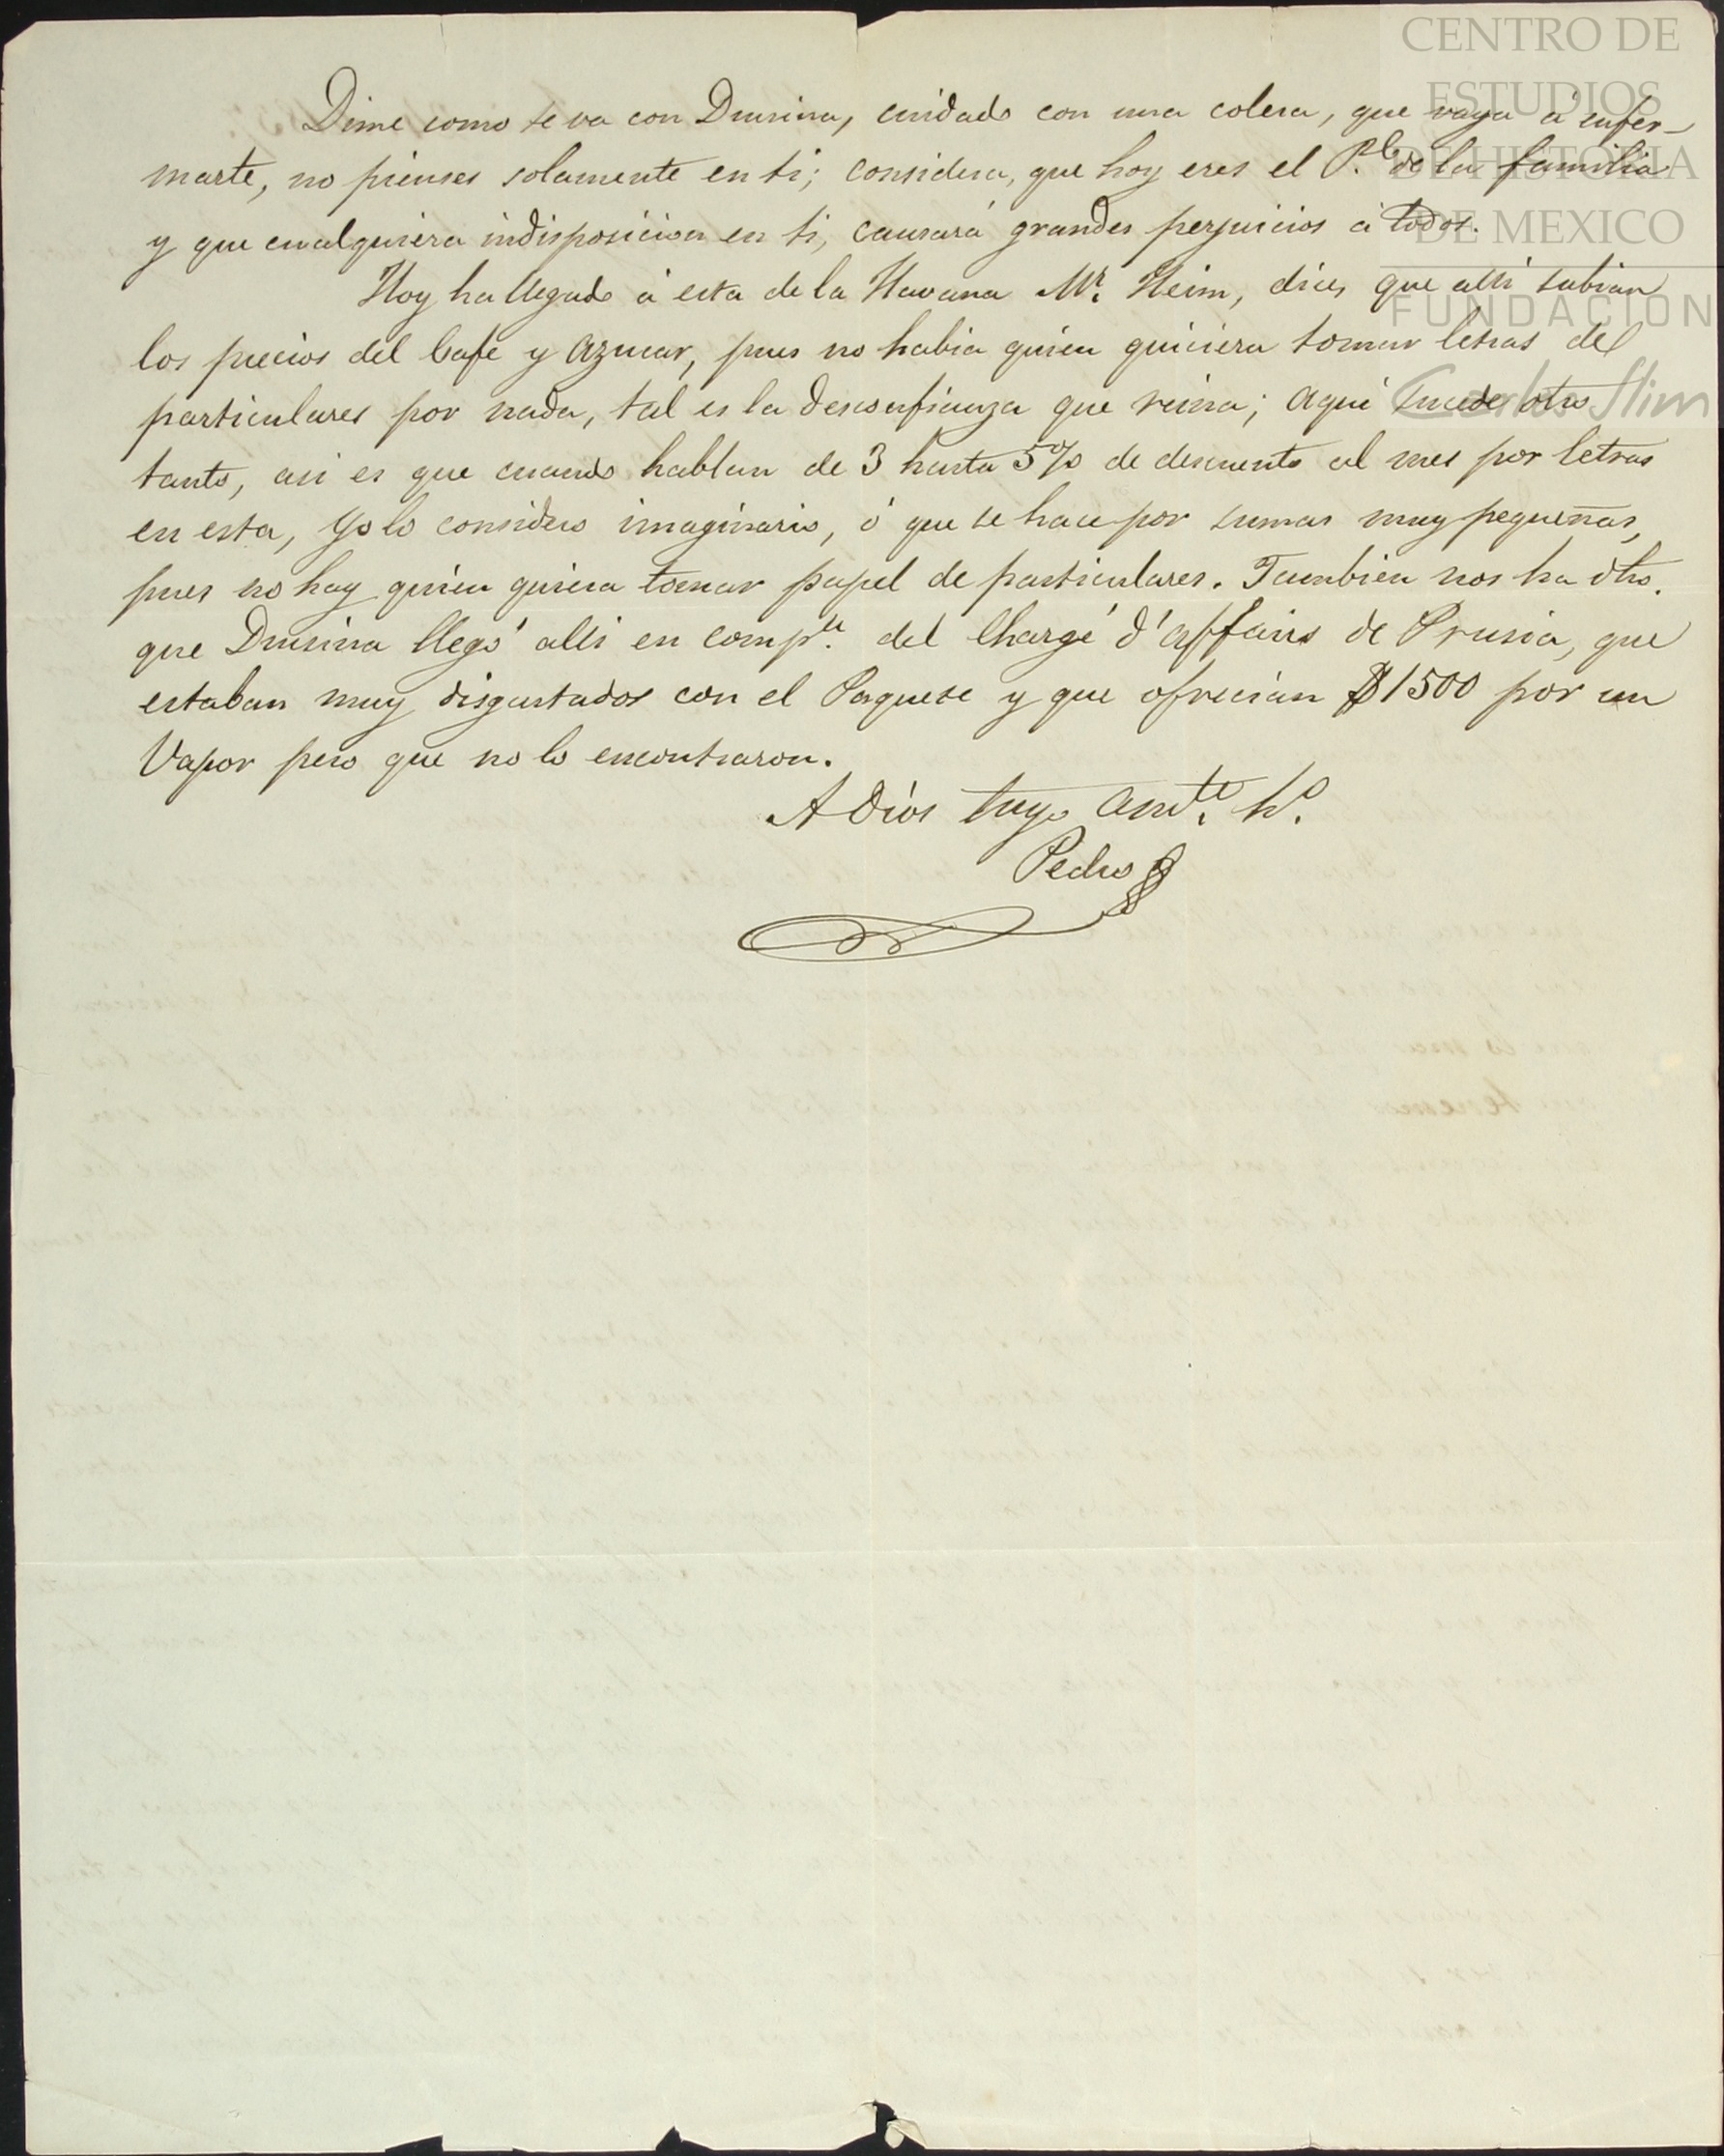 CENTRO DE
ESTUDIOS
DE HISTORIA
DE MEXICO
FUNDACION
Carlos Slim
Dime como te va con Drusina, cuidado con una colera, que vaya á enfer-
marte, no pienses solamente en ti; considera, que hoy eres el P.al de la familia
y que cualquiera indisposicion en ti, causará grandes perjuicios á todos.
Hoy ha llegado á esta de la Havana Mr. Heim, dice, que alli subian
los precios del Cafe y Azucar, pues no habia quien quiciera tomar letras de
particulares por nada, tal es la desconfianza que reina; aqui sucede otro
tanto, asi es que cuando hablan de 3 hasta 5% de descuento al mes por letras
en esta, yo lo considero imaginario, ó que se hace por sumas muy pequeñas,
pues no hay quien quiera tomar papel de particulares. Tambien nos ha dho.
que Drusina llegó alli en comp.a del Chargé d'affairs de Prusia, que
estaban muy disgustados con el Paquete y que ofrecian $1500 por un
Vapor pero que no lo encontraron.
A Dios tuyo am.te h.o
Pedro